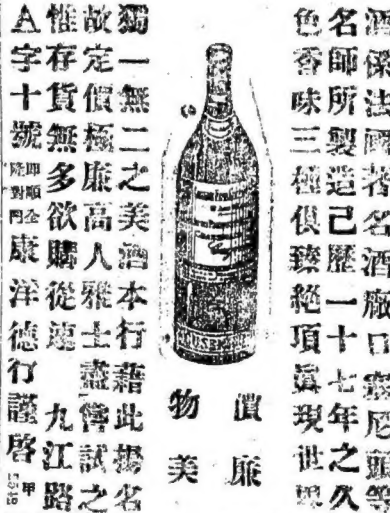 酒係法國著名酒廠口尼頭等
名師所製造已歷一十七年之久
色香味三種俱臻絕頂眞現世界
價廉
物美
獨一無二之美酒本行藉此揚名
故定價極廉高人雅士盡嘗試之
惟存貨無多欲購從速 九江路
A字十號即順全隆對門康洋德行謹啓 甲